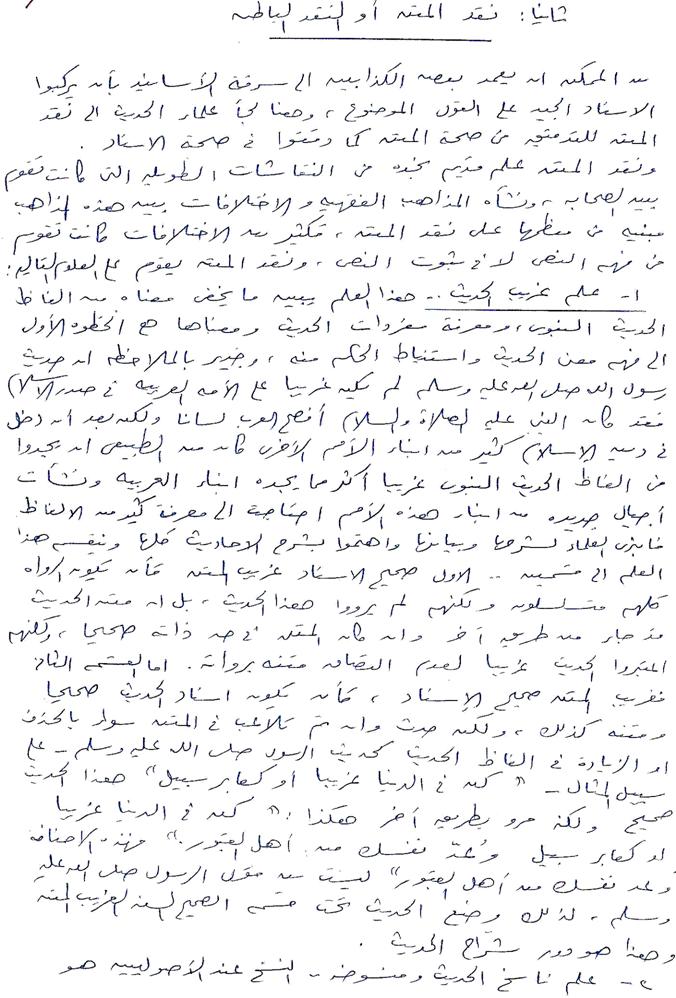 ثانيا: نقد المتن أو النقد الباطن
من الممكن ان يعمد بعض الكذابين الى سرقة الأسانيد بأن يركبوا
الاسناد الجيد على القول الموضوع، وهنا لجأ علماء الحديث الى نقد
المتن للتدقيق من صحة المتن كما دققوا في صحة الاسناد .
ونقد المتن علم قديم نجده من النقاشات الطويلة التى كانت تقوم
بين الصحابه، ونشأه المذاهب الفقهيه والاختلافات بين هذه المذاهب
مبنيه من معظمها على نقد المتن، فكثير من الاختلافات كانت تقوم
من فهم النص لا في ثبوت النص، ونقد المتن يقوم على العلوم التاليه:
١- علم غريب الحديث .. هذا العلم يبين ما يخفى معناه من الفاظ
الحديث النبوى، ومعرفة مفردات الحديث ومعناها هى الخطوه الأولى
الى فهم معنى الحديث واستنباط الحكم منه، وجدير بالملاحظه ان حديث
رسول الله صلى الله عليه وسلم لم يكن غريبا على الأمه العربيه في صدر الاسلام
فقد كان النبى عليه الصلاة والسلام أفصح العرب لسانا ولكن بعد أن دخل
في دين الاسلام كثير من ابناء الأمم الأخرى كان من الطبيعى ان يجدوا
من الفاظ الحديث النبوى غريبا أكثر مما يجده ابناء العربيه ونشأت
أجيال جديده من ابناء هذه الأمم احتاجت الى معرفة كثير من الالفاظ
فانبرى العلماء لشرحها وبيانها واهتموا بشرح الاحاديث كلها وينقسم هذا
العلم الى قسمين .. الاول صحيح الاسناد غريب المتن كأن يكون الرواه
كلهم متسلسلون ولكنهم لم يرووا هذا الحديث، بل ان متن الحديث
قد جاء من طريق آخر وان كان المتن في حد ذاته صحيحا، ولكنهم
اعتبروا الحديث غريبا لعدم التصاق متنه برواته. اما القسم الثانى
فغريب المتن صحيح الاسناد، كأن يكون اسناد الحديث صحيحا
ومتنه كذلك، ولكن حدث وان تم تلاعب في المتن سواء بالحذف
او الزيادة في الفاظ الحديث كحديث الرسول صلى الله عليه وسلم - على
سبيل المثال - "كن في الدنيا غريبا أو كعابر سبيل" هذا الحديث
صحيح ولكنه مرو بطريق آخر هكذا: "كن في الدنيا غريبا
او كعابر سبيل وعُدّ نفسك من أهل القبور." فهذه الاضافة
وعد نفسك من أهل القبور" ليست من قول الرسول صلى الله عليه
وسلم، لذلك وضع الحديث تحت قسم الصحيح السند الغريب المتن
وهذا هو دور شراح الحديث .
٢- علم ناسخ الحديث ومنسوخه .. النسخ عند الأصوليين هو